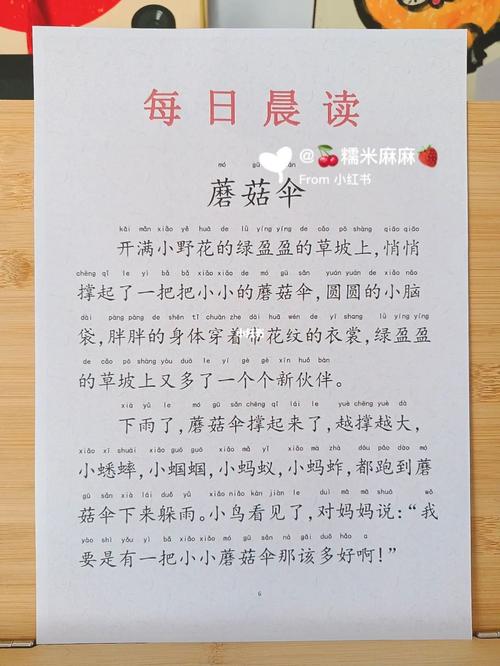 每日晨读
@🍒糯米麻麻🍓
From 小红书
mó gū sǎn
蘑菇伞
kāi mǎn xiǎo yě huā de lǜ yíng yíng de cǎo pō shàng qiāo qiāo
开满小野花的绿盈盈的草坡上,悄悄
chēng qǐ le yì bǎ bǎ xiǎo xiǎo de mó gū sǎn yuán yuán de xiǎo nǎo
撑起了一把把小小的蘑菇伞,圆圆的小脑
dài pàng pàng de shēn tǐ chuān zhe dài huā wén de yī shang lǜ yíng yíng
袋,胖胖的身体穿着带花纹的衣裳,绿盈盈
de cǎo pō shàng yòu duō le yí gè gè xīn huǒ bàn
的草坡上又多了一个个新伙伴。
xià yǔ le mó gū sǎn chēng qǐ lái le yuè chēng yuè dà
下雨了,蘑菇伞撑起来了,越撑越大,
xiǎo xī shuài xiǎo guō guo xiǎo mǎ yǐ xiǎo mà zhà dōu pǎo dào mó
小蟋蟀,小蝈蝈,小蚂蚁,小蚂蚱,都跑到蘑
gū sǎn xià lái duǒ yǔ xiǎo niǎo kàn jiàn le duì mā mā shuō wǒ
菇伞下来躲雨。小鸟看见了,对妈妈说:“我
yào shì yǒu yì bǎ xiǎo xiǎo mó gū sǎn nà gāi duō hǎo a
要是有一把小小蘑菇伞那该多好啊!”
6